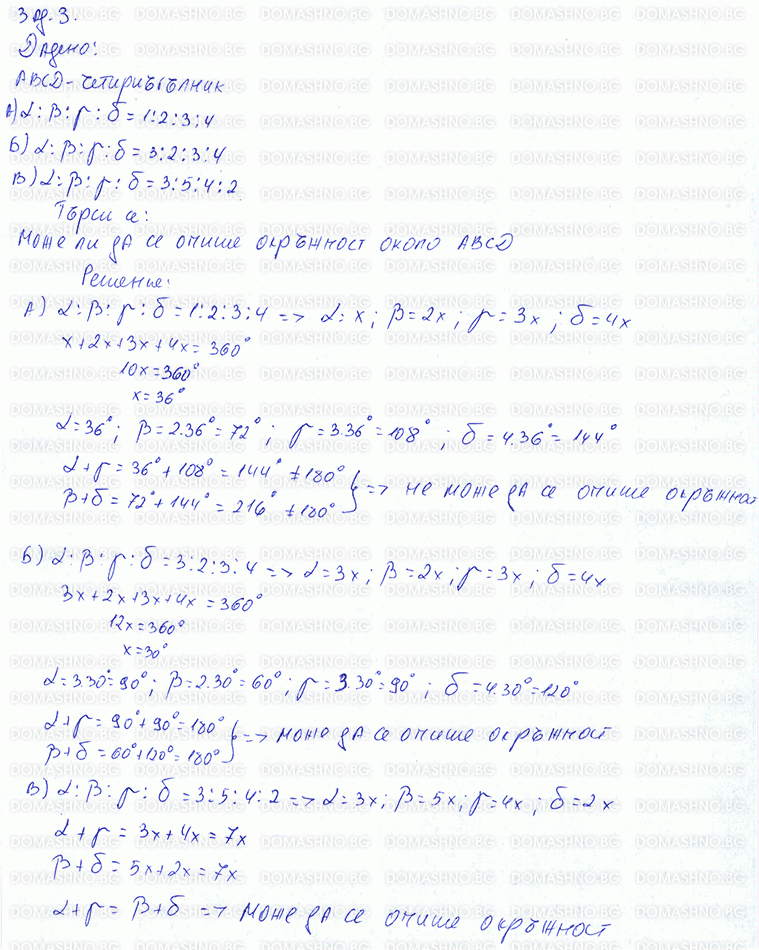 Зад. 3.
Дадено:
ABCD - четириъгълник
А) α : β : γ : δ = 1 : 2 : 3 : 4
Б) α : β : γ : δ = 3 : 2 : 3 : 4
В) α : β : γ : δ = 3 : 5 : 4 : 2
Търси се:
Може ли да се опише окръжност около ABCD
Решение:
А) α : β : γ : δ = 1 : 2 : 3 : 4 => α = x ; β = 2x ; γ = 3x ; δ = 4x
x + 2x + 3x + 4x = 360°
10x = 360°
x = 36°
α = 36° ; β = 2.36° = 72° ; γ = 3.36° = 108° ; δ = 4.36° = 144°
α + γ = 36° + 108° = 144° ≠ 180°
β + δ = 72° + 144° = 216° ≠ 180° } => не може да се опише окръжност
Б) α : β : γ : δ = 3 : 2 : 3 : 4 => α = 3x ; β = 2x ; γ = 3x ; δ = 4x
3x + 2x + 3x + 4x = 360°
12x = 360°
x = 30°
α = 3.30° = 90° ; β = 2.30° = 60° ; γ = 3.30° = 90° ; δ = 4.30° = 120°
α + γ = 90° + 90° = 180°
β + δ = 60° + 120° = 180° } => може да се опише окръжност
В) α : β : γ : δ = 3 : 5 : 4 : 2 => α = 3x ; β = 5x ; γ = 4x ; δ = 2x
α + γ = 3x + 4x = 7x
β + δ = 5x + 2x = 7x
α + γ = β + δ => може да се опише окръжност
DOMASHNO.BG